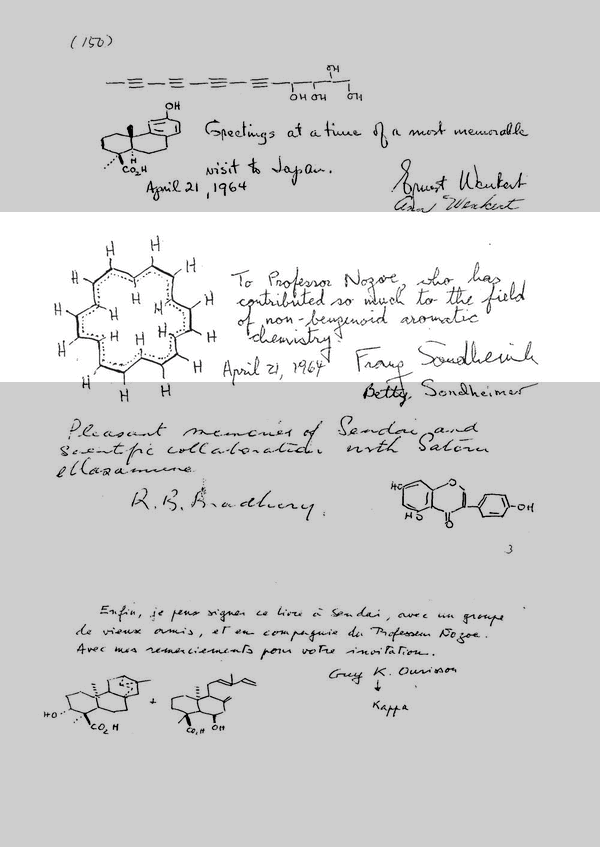 (150)
OH
OH OH OH
OH
Greetings at a time of a most memorable
CO₂H
visit to Japan.
April 21, 1964
Ernest Wenkert
Ann Wenkert
H H H H H H H H H H H H H H H H H H
To Professor Nozoe, who has
contributed so much to the field
of non-benzenoid aromatic
chemistry
April 21, 1964
Franz Sondheimer
Betty Sondheimer
Pleasant memories of Sendai and
scientific collaboration with Satoru
Masamune
R. B. Bradbury.
HO O
HO O OH
3
Enfin, je peux signer ce livre à Sendai, avec un groupe
de vieux amis, et en compagnie du Professeur Nozoe.
Avec mes remerciements pour votre invitation.
Guy K. Ourisson
↓
Kappa
HO CO₂H + CO₂H OH